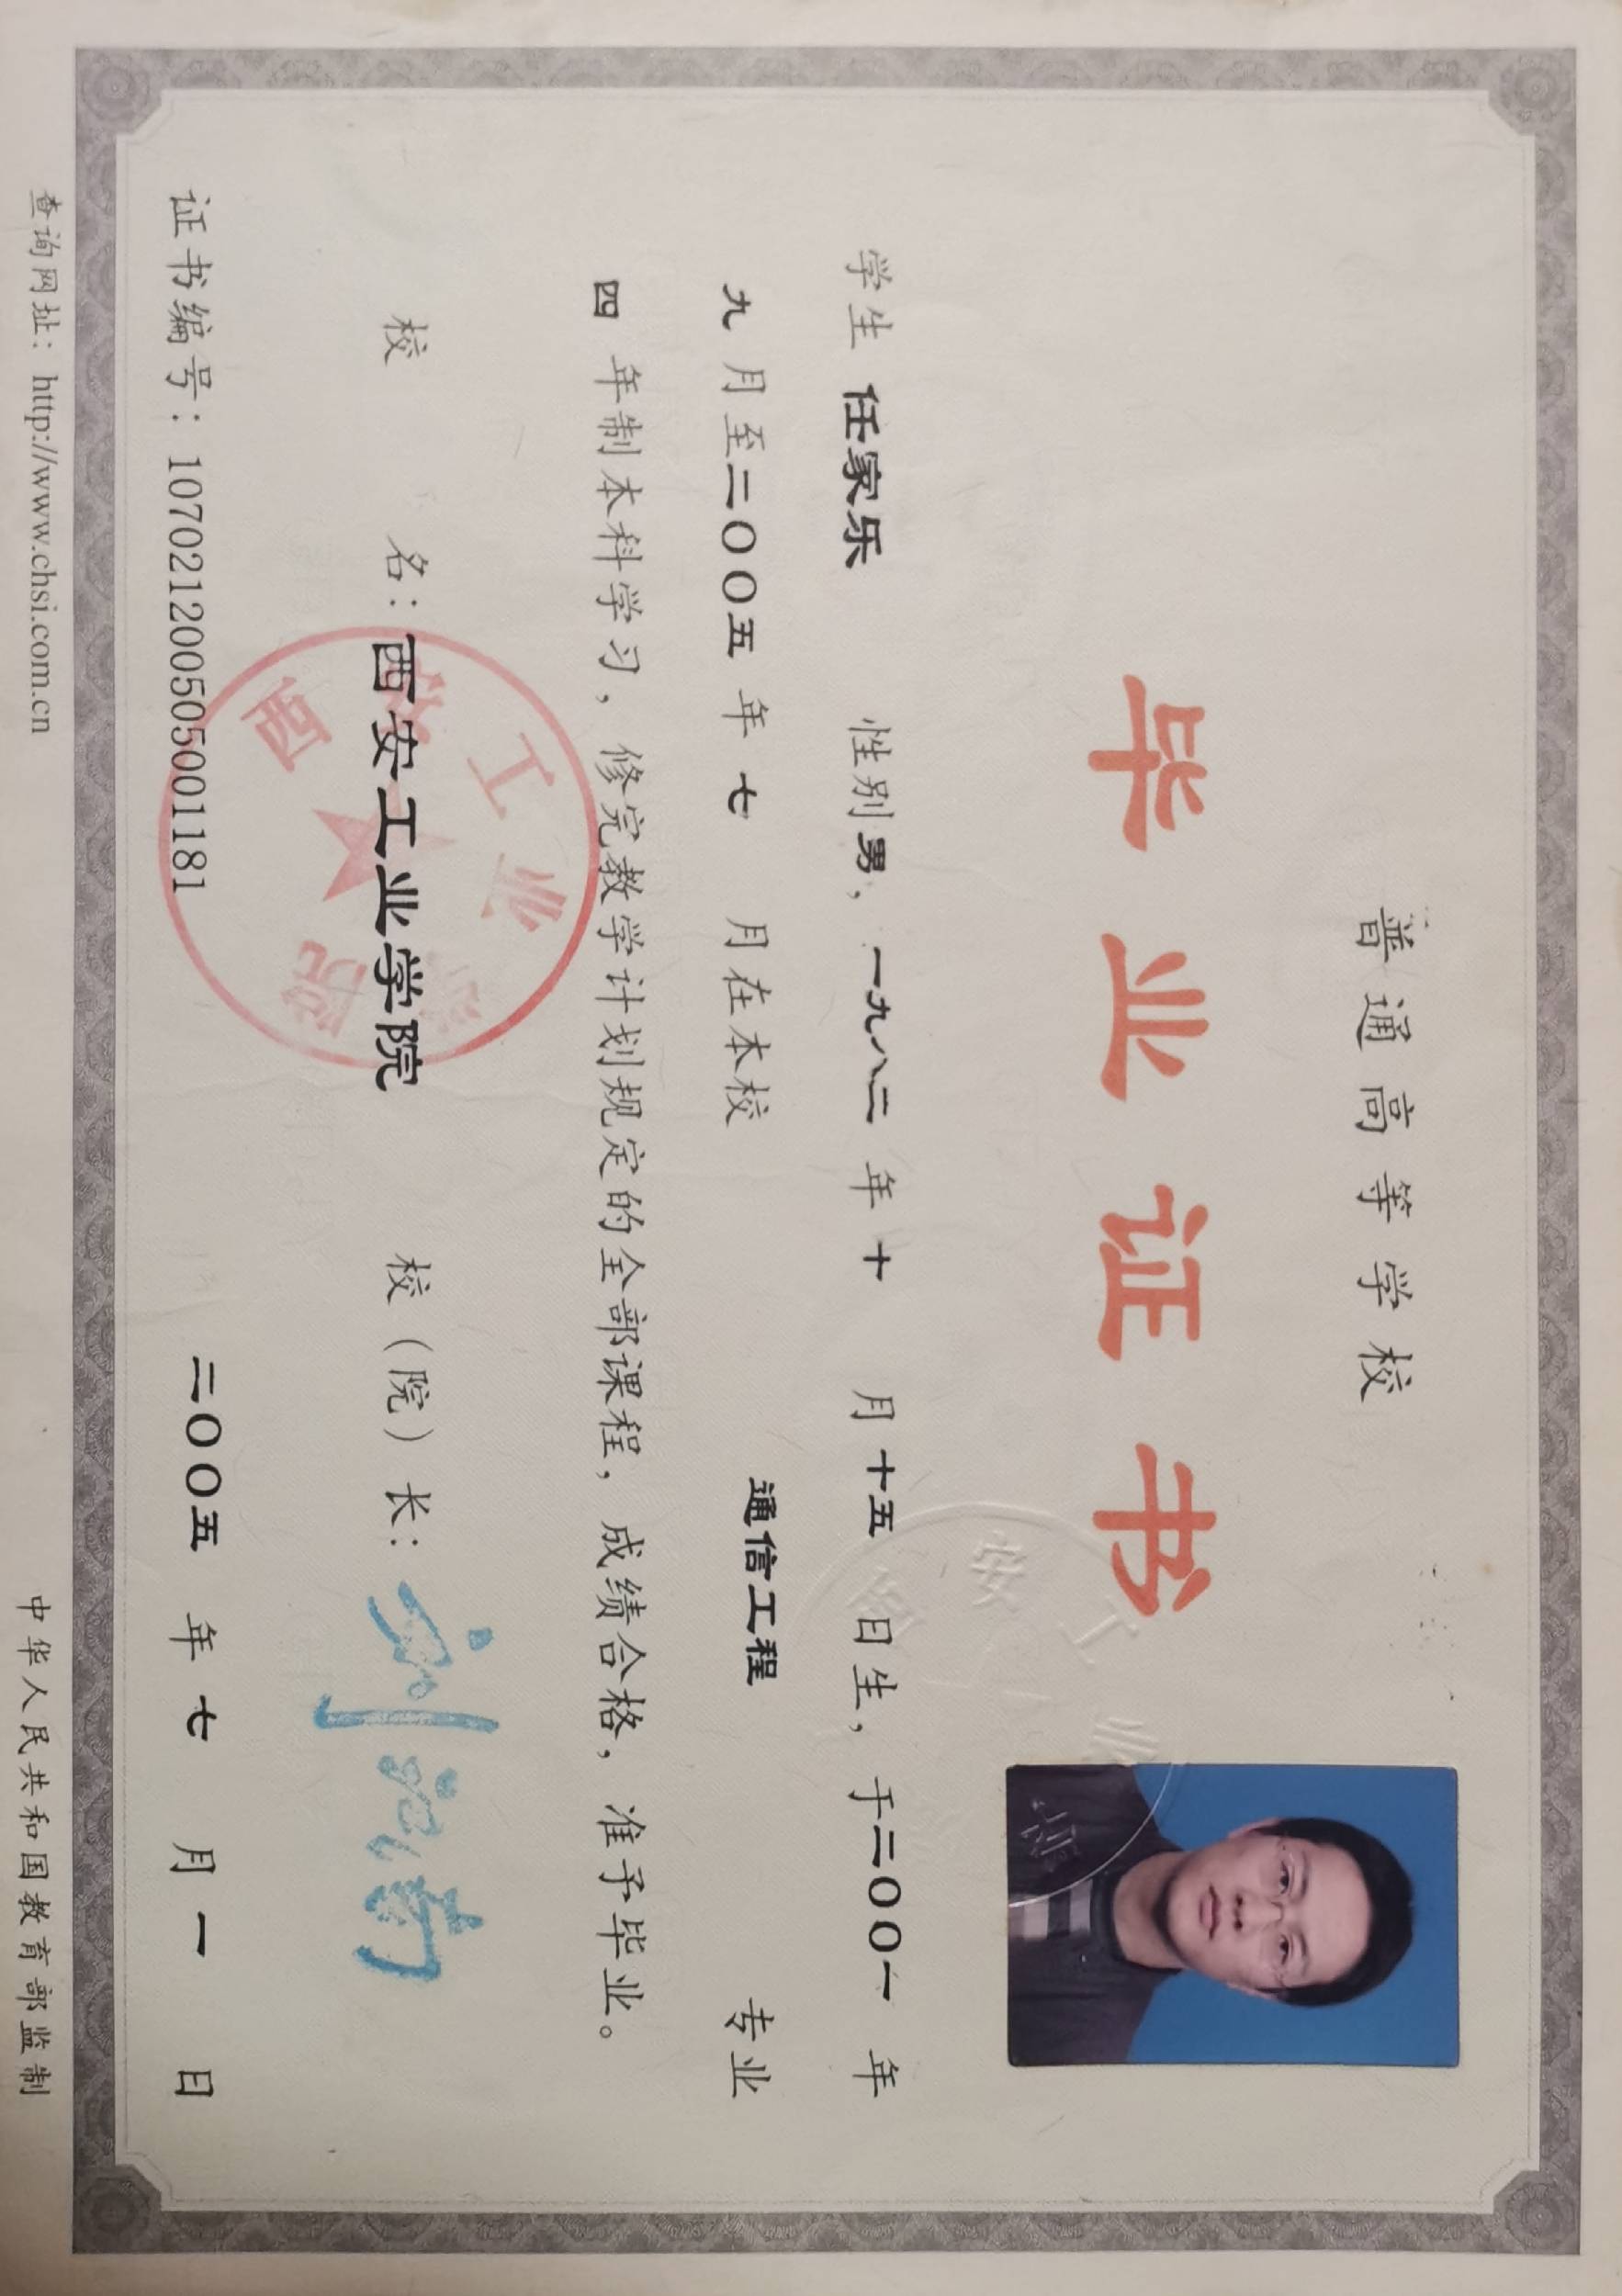 普通高等学校
毕业证书
学生 任家乐 性别男，一九八二 年 十 月 十五 日生，于二〇〇一 年
九 月至二〇〇五 年 七 月在本校 通信工程 专业
四 年制本科学习，修完教学计划规定的全部课程，成绩合格，准予毕业。
校 名：西安工业学院 校（院）长：
西安工业学院
证书编号：107021200505001181 二〇〇五 年 七 月 一 日
查询网址：http://www.chsi.com.cn 中华人民共和国教育部监制